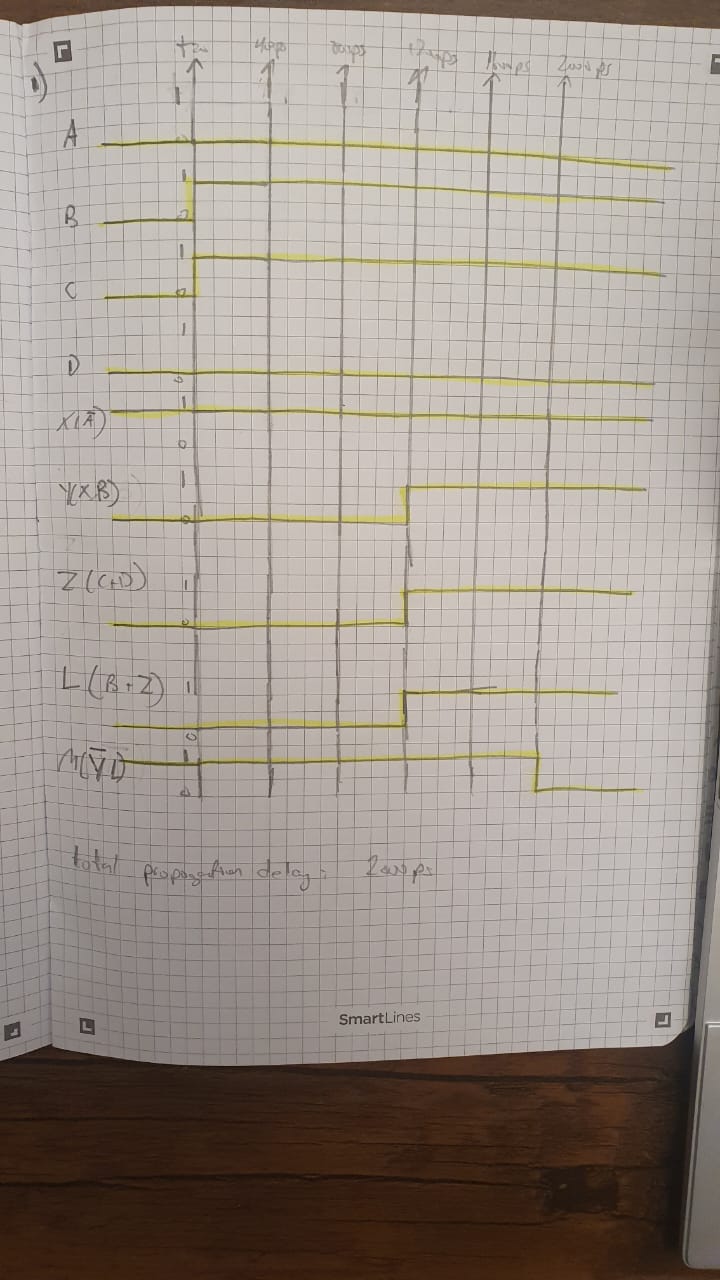 1)
t=0 400ps 800ps 1200ps 1600ps 2000ps
1
A 0
1
B 0
1
C 0
1
D 0
X(Ā) 1
0
Y(XB) 1
0
Z(C+D) 1
0
L(B+Z) 1
0
M(Y̅L̅) 1
0
total propagation delay: 2000ps
SmartLines